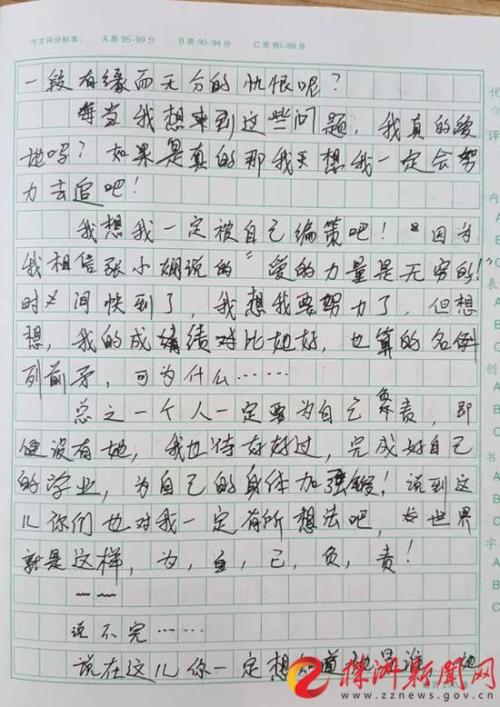 作文评分标准： A类 95-99分 B类 90-94分 C类 80-89分
一段有缘而无分的仇恨呢？
每当我想来到这些问题，我真的爱
她吗？如果是真的那我天想我一定会努
力去追吧！
我想我一定被自己编策吧！“因为
我相信张小娴说的“爱的力量是无穷的！
时间快到了，我想我要努力了，但想
想，我的成绩对比她好，也算的名例
列前矛，可为什么……
总之一个人一定要为自己负责，即
便没有她，我也待好好过，完成好自己
的学业，为自己的身体加强锻！说到这
儿你们也对我一定有所想法吧，世界
就是这样，为，自，己，负，责！
～～
说不完……
说在这儿你一定想知道她是谁，她
代
☆
评
内
A
B
C
表
A
B
C
创
A
B
书
A
B
C
字
A
C
株洲新闻网
www.zznews.gov.cn